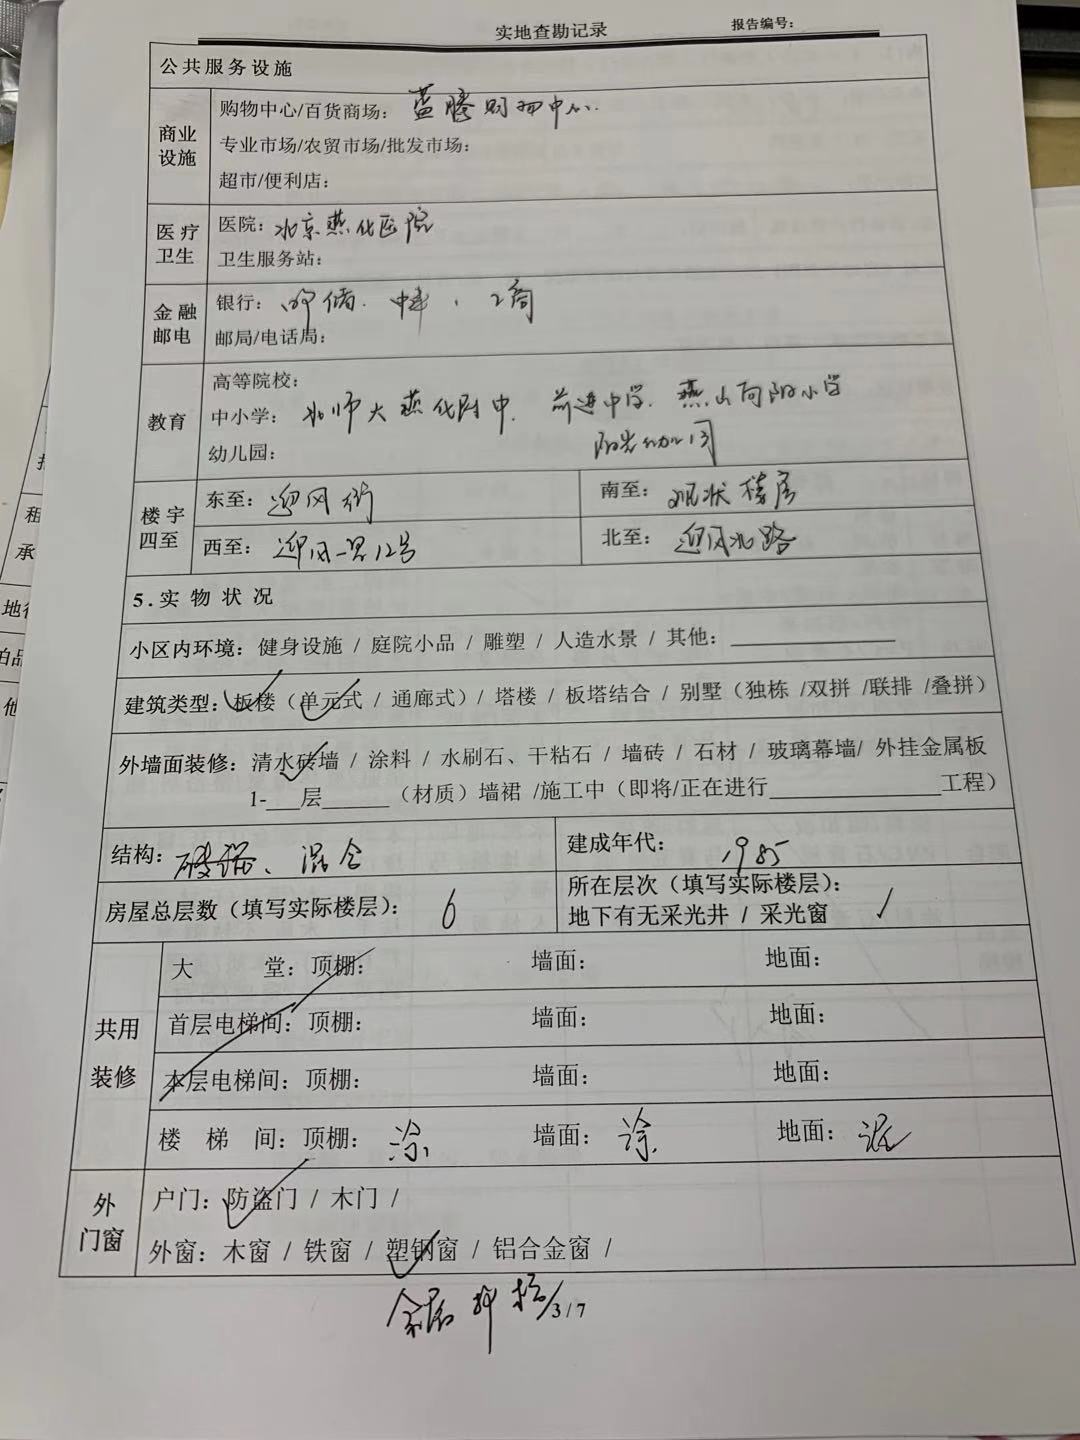 实地查勘记录 报告编号：
公共服务设施
商业设施
购物中心/百货商场：蓝腾购物中心.
专业市场/农贸市场/批发市场：
超市/便利店：
医疗卫生
医院：北京燕化医院
卫生服务站：
金融邮电
银行：邮储. 中行、工商
邮局/电话局：
教育
高等院校：
中小学：北师大燕化附中. 前进中学. 燕山向阳小学
幼儿园：阳光幼儿园
楼宇四至
东至：迎风街 南至：现状楼房
西至：迎风一里12号 北至：迎风北路
5.实物状况
小区内环境：健身设施 / 庭院小品 / 雕塑 / 人造水景 / 其他：
建筑类型：板楼（单元式 / 通廊式）/ 塔楼 / 板塔结合 / 别墅（独栋 /双拼 /联排 /叠拼）
外墙面装修：清水砖墙 / 涂料 / 水刷石、干粘石 / 墙砖 / 石材 / 玻璃幕墙/ 外挂金属板
1-___层______（材质）墙裙 /施工中（即将/正在进行_______________工程）
结构：混合 建成年代：1985
房屋总层数（填写实际楼层）：6 所在层次（填写实际楼层）：
地下有无采光井 / 采光窗
共用装修
大堂：顶棚： 墙面： 地面：
首层电梯间：顶棚： 墙面： 地面：
本层电梯间：顶棚： 墙面： 地面：
楼梯间：顶棚：涂 墙面：涂 地面：泥
外门窗
户门：防盗门 / 木门 /
外窗：木窗 / 铁窗 / 塑钢窗 / 铝合金窗 /
3/7